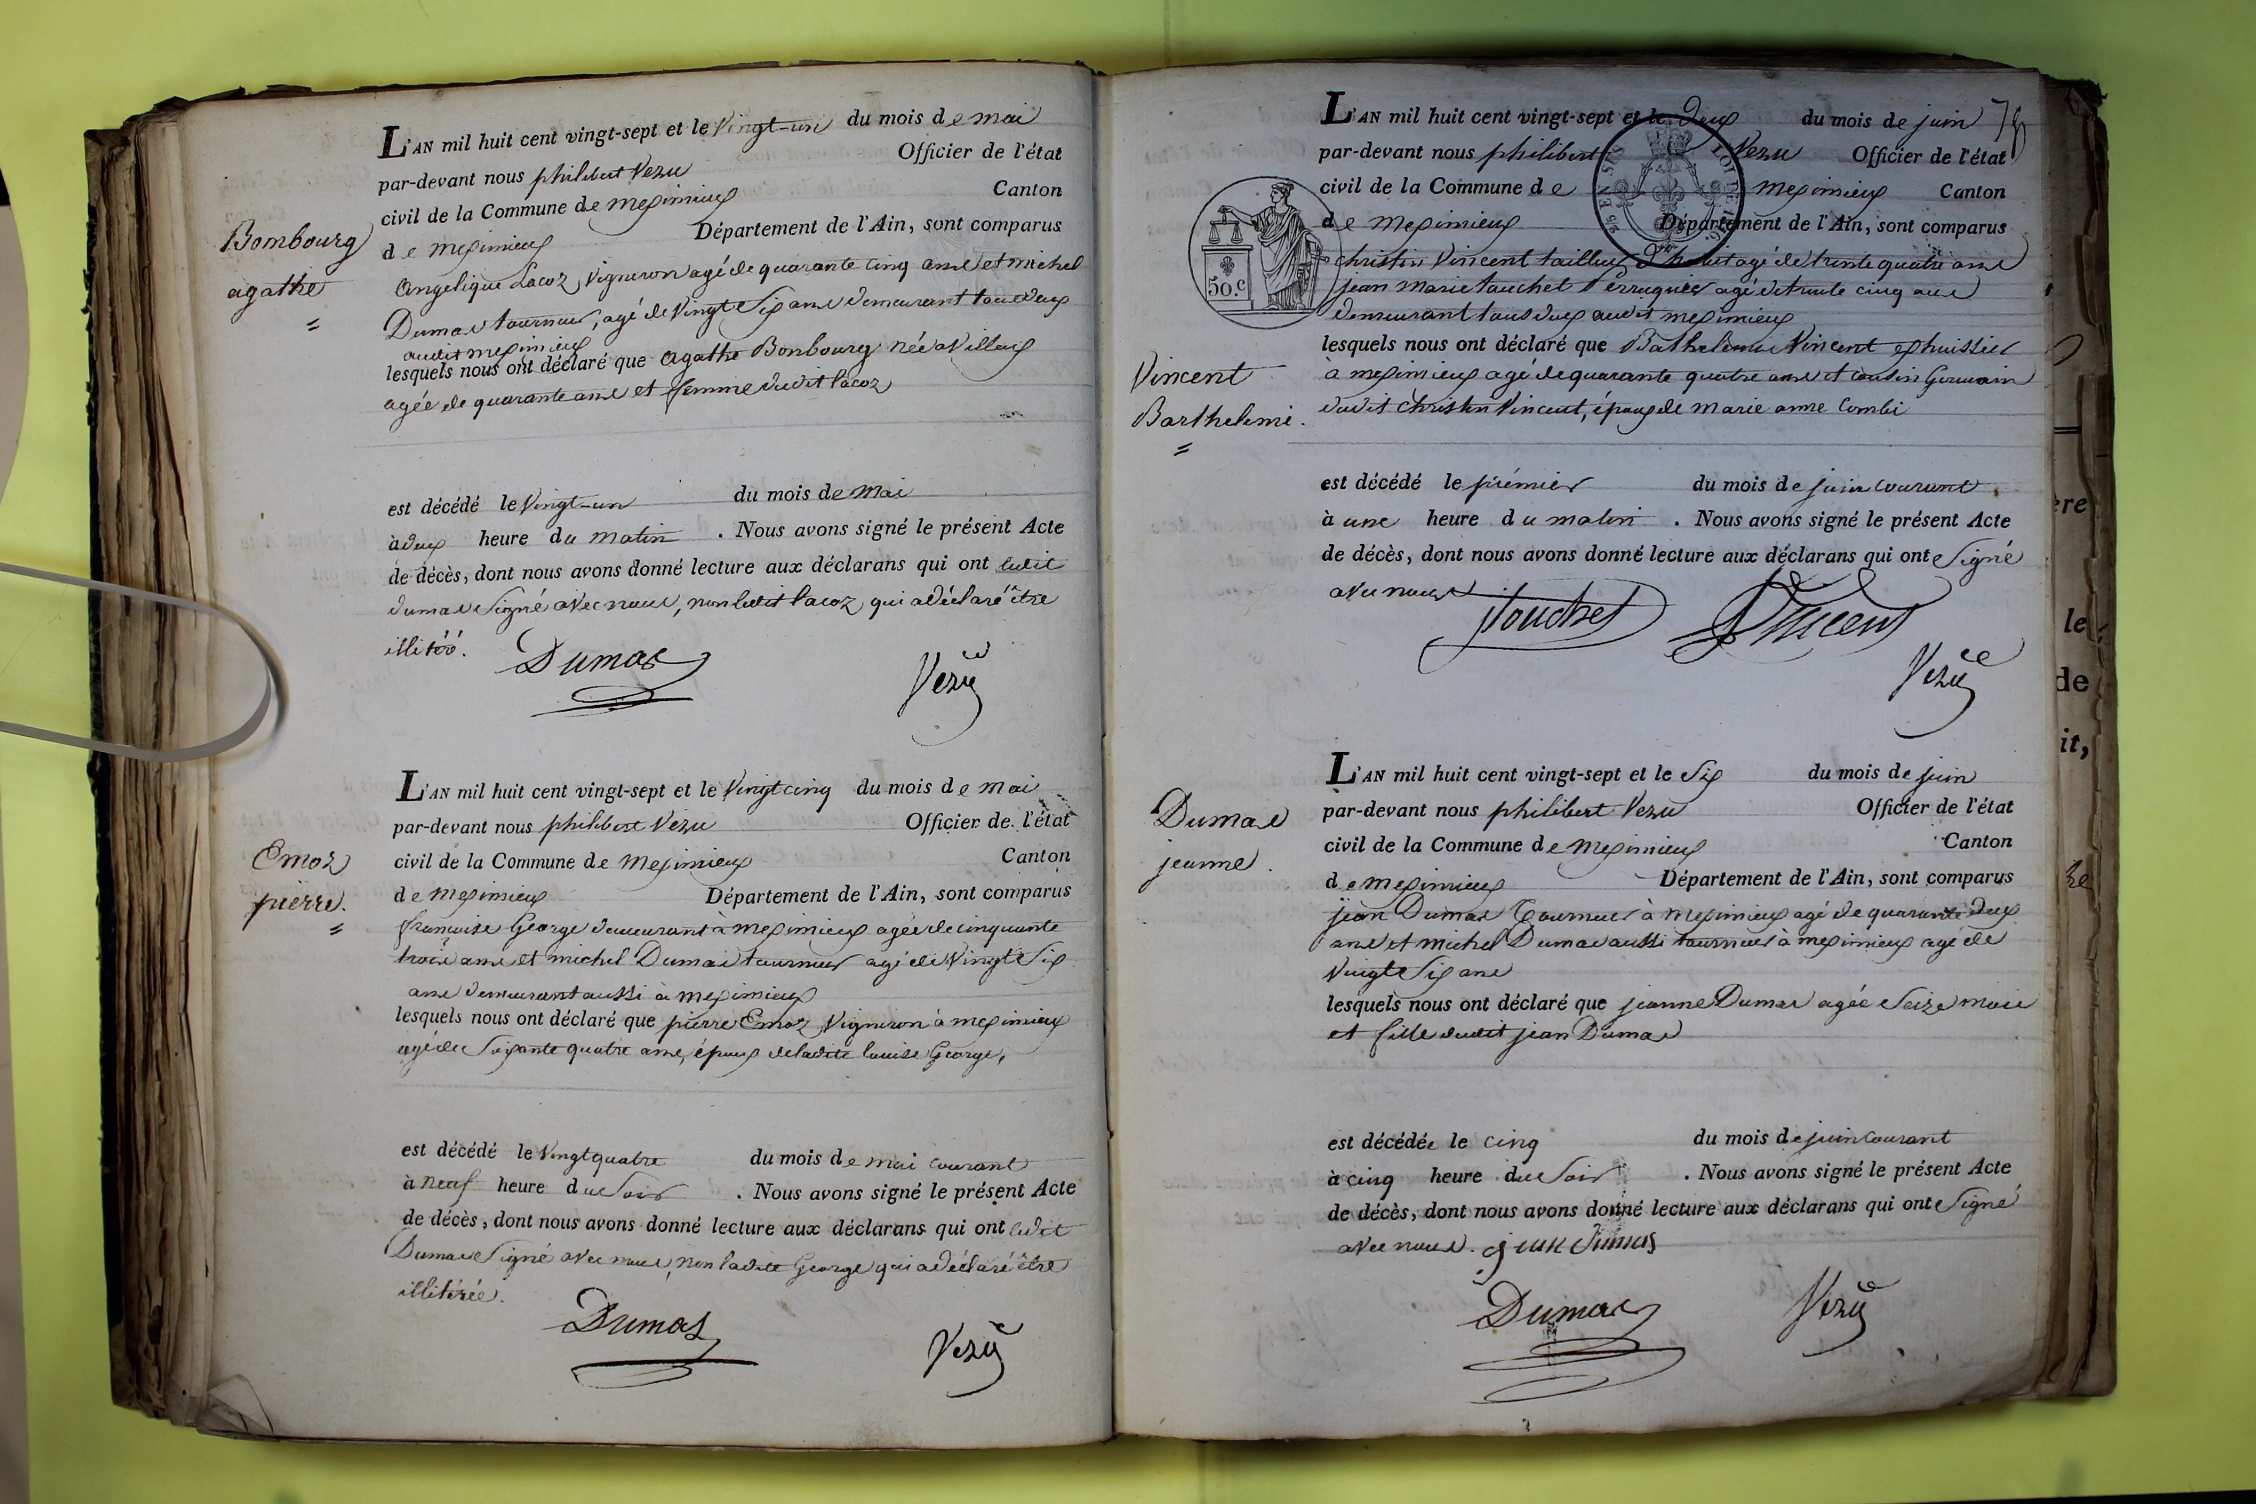 L'AN mil huit cent vingt-sept et le Vingt-un du mois de mai
par-devant nous philibert Vezu Officier de l'état
civil de la Commune de meximieux Canton
de meximieux Département de l'Ain, sont comparus
Bombourg
agathe
=
angelique Lacoz, vigneron agé de quarante cinq ans et michel
Dumas tourneur, agé de vingt six ans demeurant tous deux
audit meximieux
lesquels nous ont déclaré que agathe Bonbourg née a Villeux
agée de quarante ans et femme dudit Lacoz
est décédé le Vingt-un du mois de mai
à deux heure du matin . Nous avons signé le présent Acte
de décès, dont nous avons donné lecture aux déclarans qui ont ledit
dumas signé avec nous, non ledit Lacoz, qui a déclaré être
illitéré.
Dumas
Vezu
L'AN mil huit cent vingt-sept et le Vingt cinq du mois de mai
par-devant nous philibert Vezu Officier de l'état
civil de la Commune de Meximieux Canton
de meximieux Département de l'Ain, sont comparus
Emoz
pierre.
=
françoise George demeurant à meximieux agée de cinquante
trois ans et michel Dumas tourneur agé de Vingt six
ans demeurant aussi à meximieux
lesquels nous ont déclaré que pierre Emoz Vigneron à meximieux
agé de soixante quatre ans, époux de ladite louise George,
est décédé le Vingt quatre du mois de mai courant
à neuf heure du soir . Nous avons signé le présent Acte
de décès, dont nous avons donné lecture aux déclarans qui ont ledit
Dumas signé avec nous, non ladite George qui a déclaré être
illitérée.
Dumas
Vezu
L'AN mil huit cent vingt-sept et le deux du mois de juin
par-devant nous philibert Vezu Officier de l'état
civil de la Commune de meximieux Canton
de meximieux Département de l'Ain, sont comparus
50.c
christin Vincent tailleur d'habit agé de trente quatre ans
jean marie touchet perruquier agé de trente cinq ans
demeurant tous deux audit meximieux
Vincent
Barthelemi.
=
lesquels nous ont déclaré que Barthelemi Vincent ex huissier
à meximieux agé de quarante quatre ans et cousin Germain
dudit christin Vincent, époux de marie anne Combi
est décédé le premier du mois de juin courant
à une heure du matin . Nous avons signé le présent Acte
de décès, dont nous avons donné lecture aux déclarans qui ont signé
avec nous
Touchet Vincent
Vezu
L'AN mil huit cent vingt-sept et le six du mois de juin
par-devant nous philibert Vezu Officier de l'état
civil de la Commune de meximieux Canton
de meximieux Département de l'Ain, sont comparus
Dumas
jeanne.
jean Dumas Tourneur à meximieux agé de quarante deux
ans et michel Dumas aussi tourneur à meximieux agé de
vingt six ans
lesquels nous ont déclaré que jeanne Dumas agée seize mois
et fille dudit jean Dumas
est décédée le cinq du mois de juin courant
à cinq heure du soir . Nous avons signé le présent Acte
de décès, dont nous avons donné lecture aux déclarans qui ont signé
avec nous. jean Dumas
Dumas
Vezu
le
de
it,